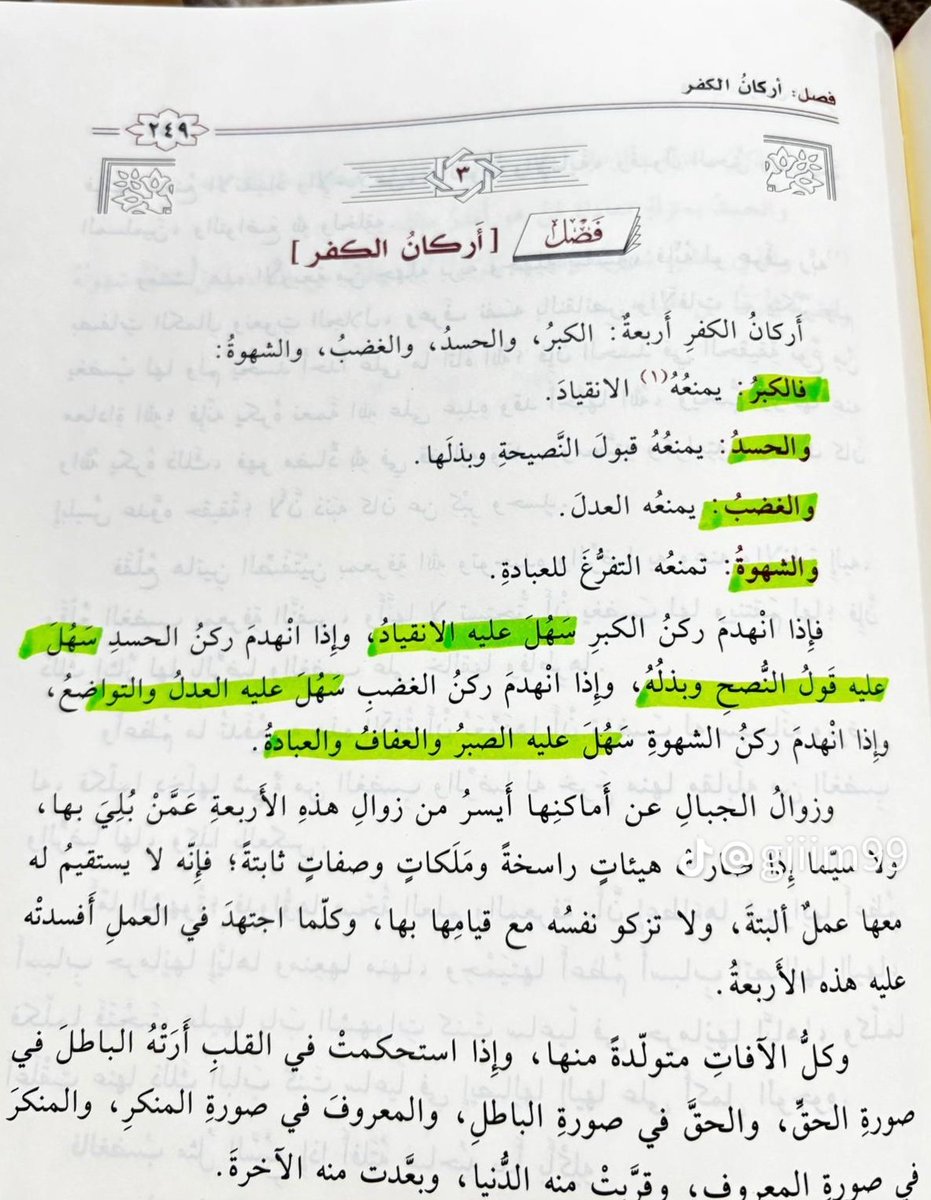 فصل: أركانُ الكفر
٢٤٩
٣
فَصْل [أَركانُ الكفر]
أَركانُ الكفرِ أَربعةٌ: الكبرُ، والحسدُ، والغضبُ، والشهوةُ:
فالكبرُ: يمنعُهُ(١) الانقيادَ.
والحسدُ: يمنعُهُ قبولَ النَّصيحةِ وبذلَها.
والغضبُ: يمنعُه العدلَ.
والشهوةُ: تمنعُه التفرُّغَ للعبادةِ.
فإِذا انْهدمَ ركنُ الكبرِ سَهُلَ عليه الانقيادُ، وإِذا انْهدمَ ركنُ الحسدِ سَهُلَ
عليه قَولُ النُّصحِ وبذلُهُ، وإِذا انْهدمَ ركنُ الغضبِ سَهُلَ عليه العدلُ والتواضعُ،
وإِذا انْهدمَ ركنُ الشهوةِ سَهُلَ عليه الصبرُ والعفافُ والعبادةُ.
وزوالُ الجبالِ عن أَماكنِها أَيسرُ من زوالِ هذهِ الأَربعةِ عَمَّنْ بُلِيَ بها،
ولا سيّما إِذا صارتْ هيئاتٍ راسخةً ومَلَكاتٍ وصفاتٍ ثابتةً؛ فإِنّه لا يستقيمُ له
@gijim99
معها عملٌ ألبتةَ، ولا تزكو نفسُه مع قيامِها بها، وكلّما اجتهدَ في العملِ أَفسدتْه
عليه هذه الأَربعةُ.
وكلُّ الآفاتِ متولّدةٌ منها، وإِذا استحكمتْ في القلبِ أَرَتْهُ الباطلَ في
صورةِ الحقِّ، والحقَّ في صورةِ الباطلِ، والمعروفَ في صورةِ المنكرِ، والمنكرَ
في صورةِ المعروفِ، وقرَّبتْ منه الدُّنيا، وبعَّدت منه الآخرةَ.